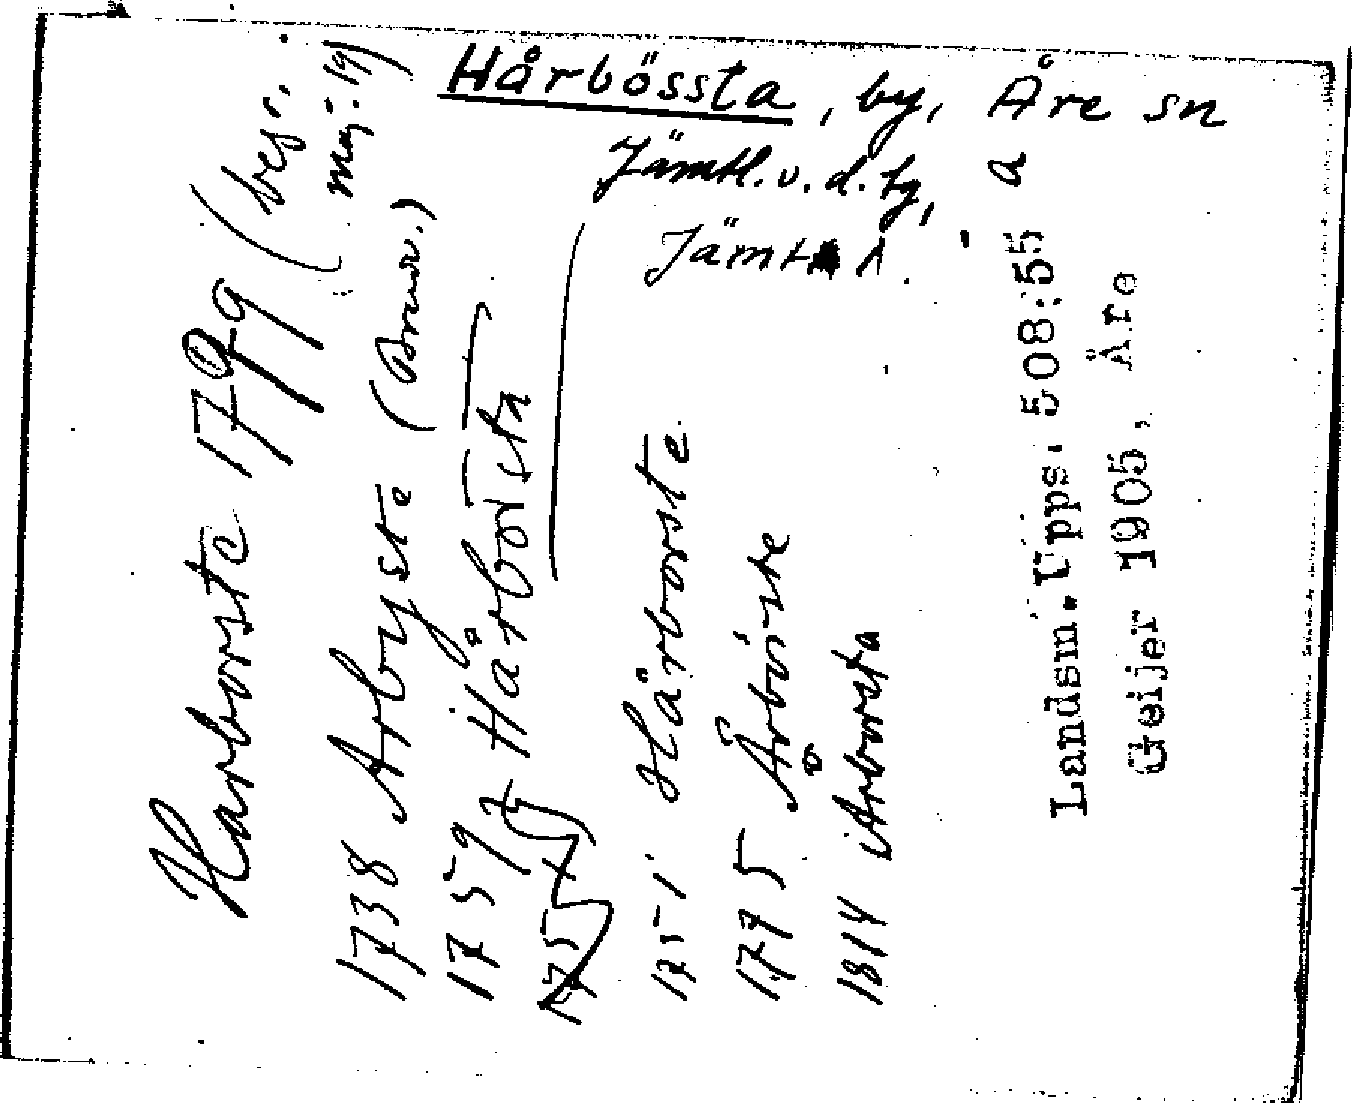 Hårbössta, by, Åre sn
Jämtl. v. d. tg,
Jämtl.
Harborste 1799 (bef.
maj. 19)
1738 Arbyste
1759 Hårbörsta
1751 Härborste
1775 Årbörste
1814 Arborsta
Landsm. Upps. 508:55 a
Geijer 1905, Åre